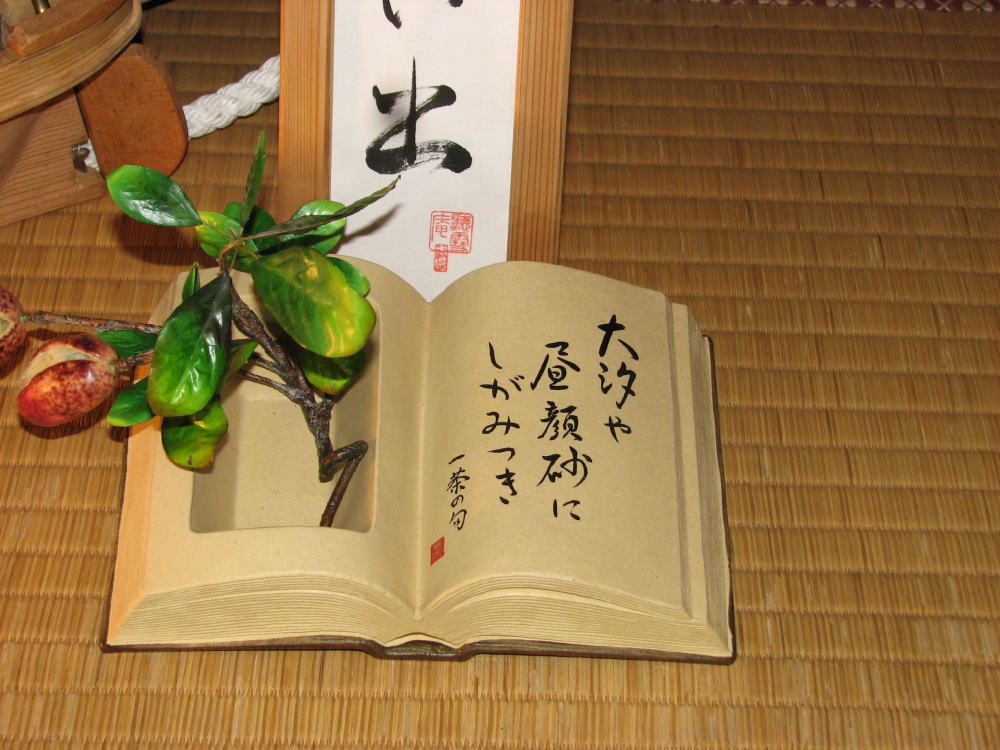 い出
大汐や
昼顔砂に
しがみつき
一茶の句